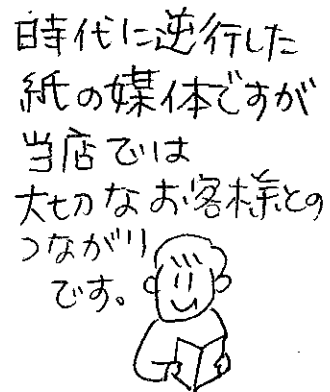 時代に逆行した
紙の媒体ですが
当店では
大切なお客様との
つながり
です。